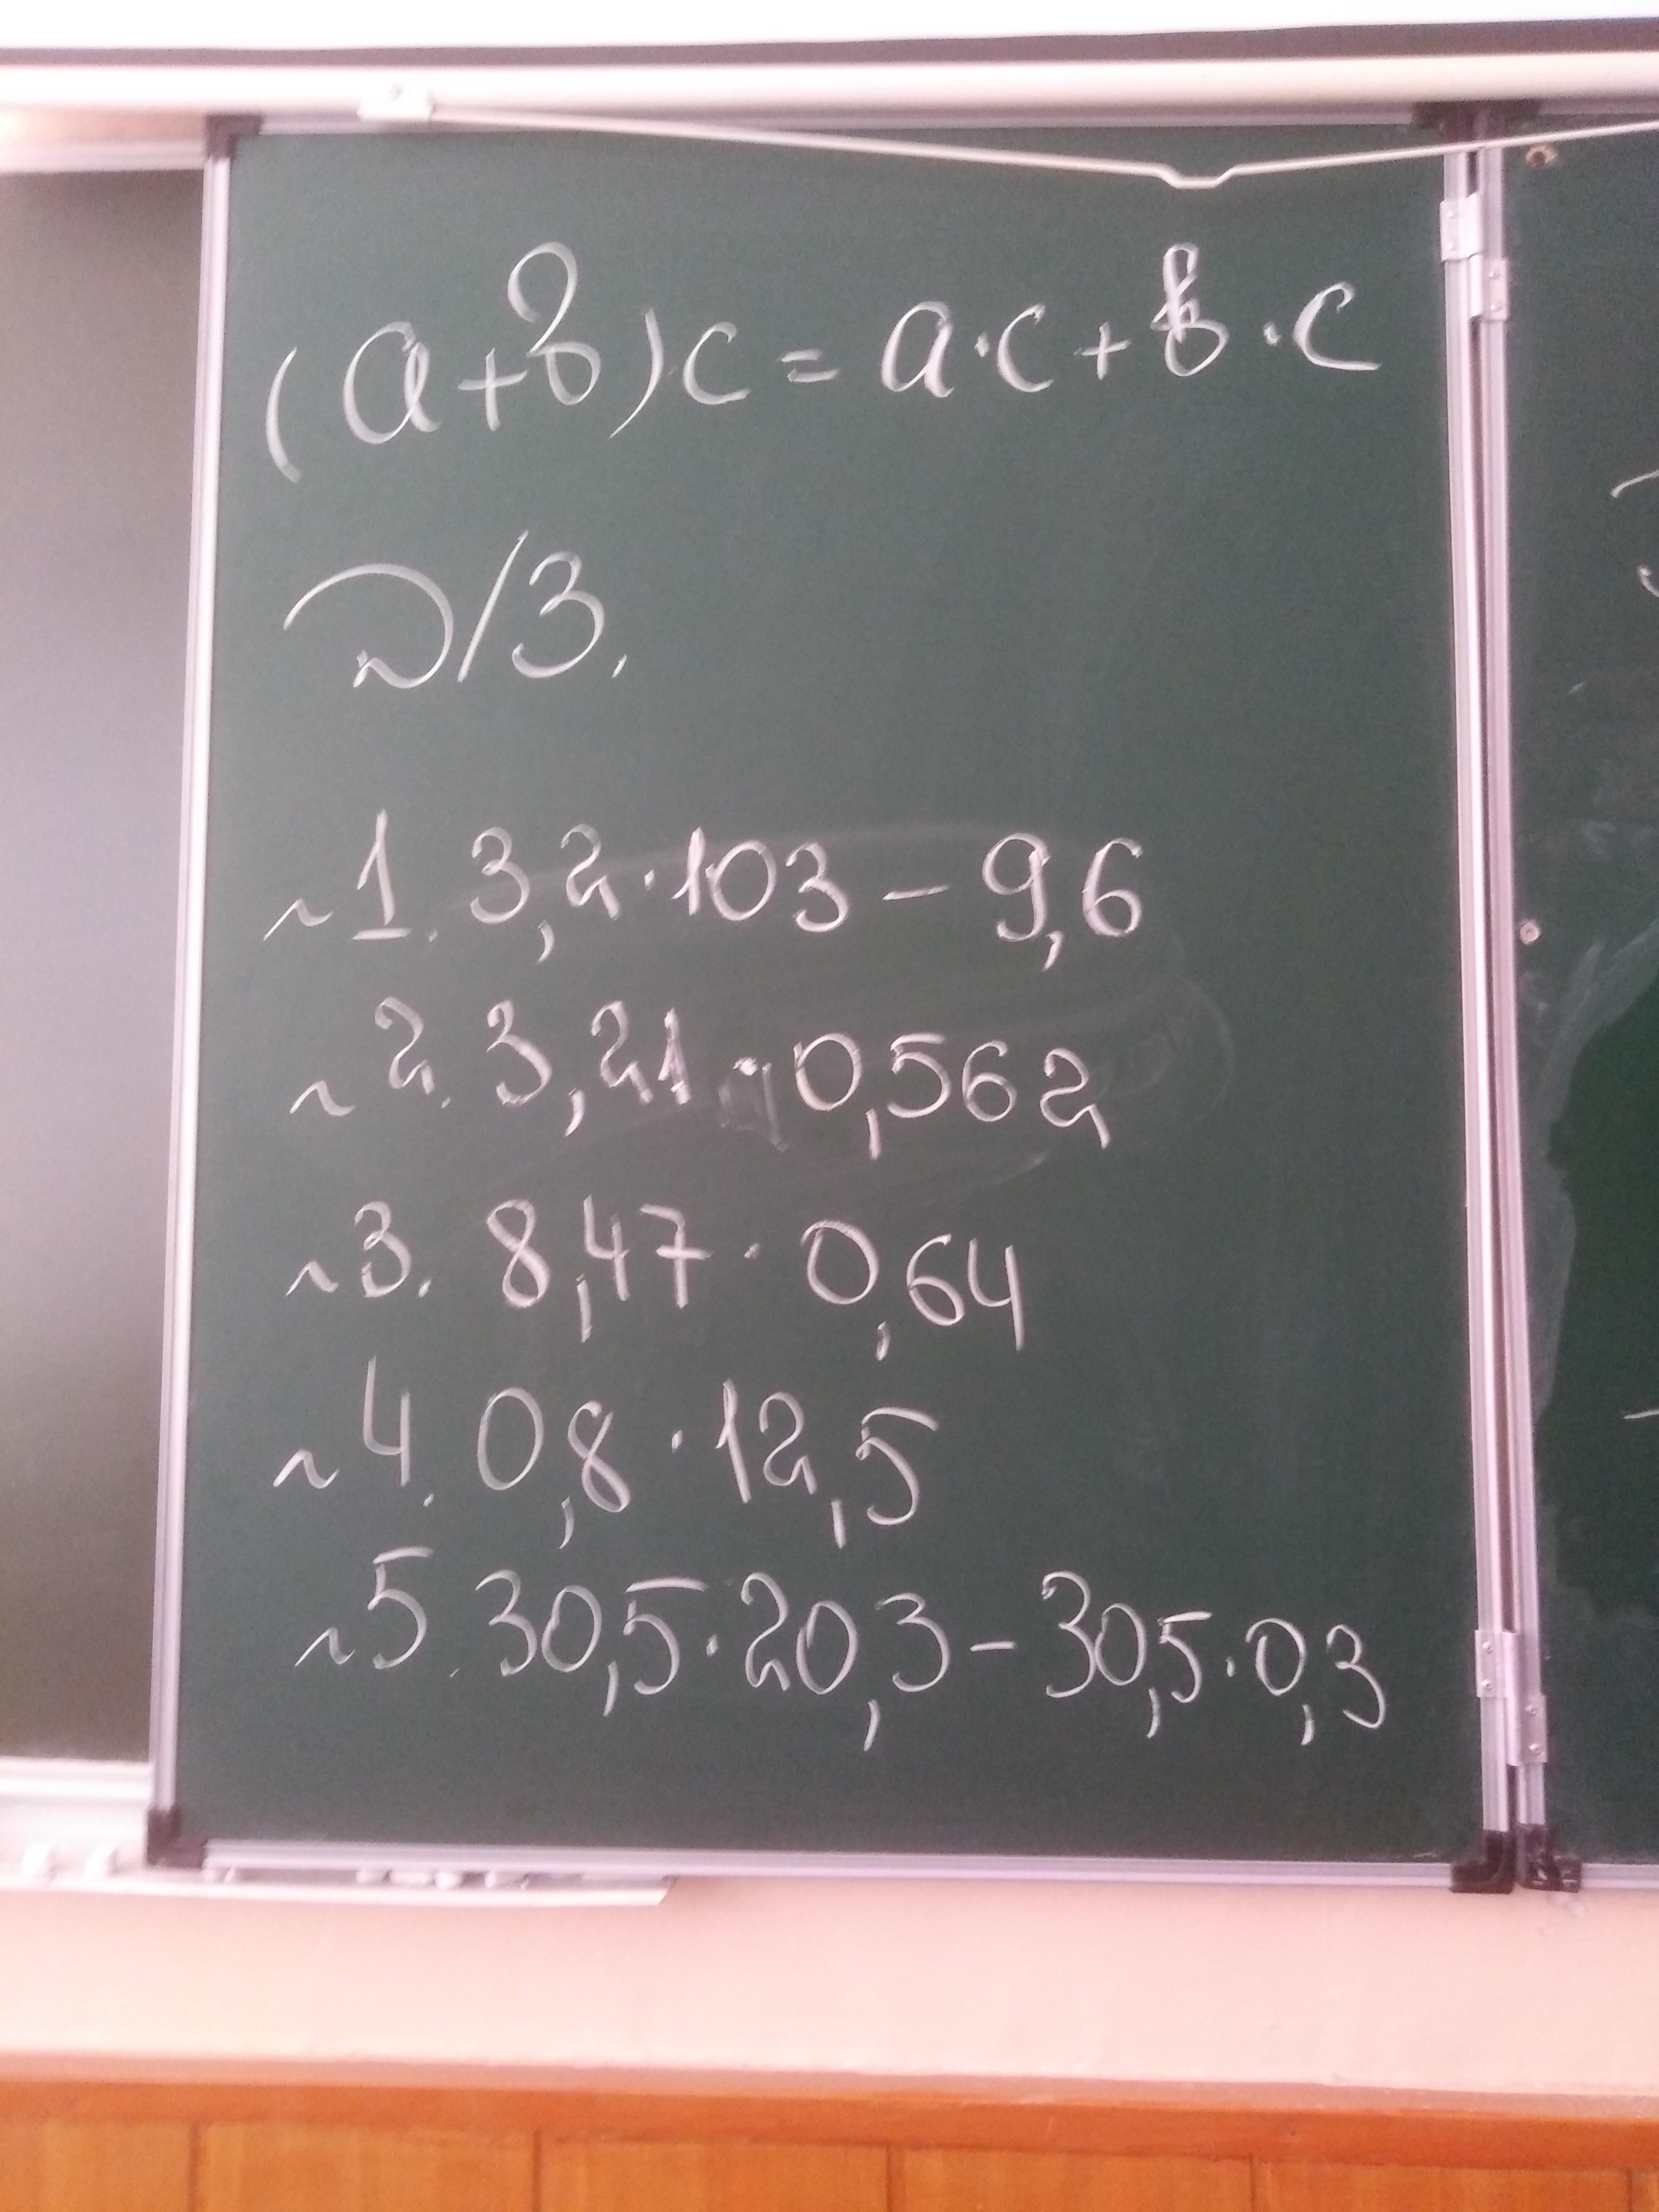 (а+в)с = а·с + в·с
Д/З.
~1. 3,2·103 – 9,6
~2. 3,21 · 0,562
~3. 8,47 · 0,64
~4. 0,8 · 12,5
~5. 30,5·20,3 – 30,5·0,3